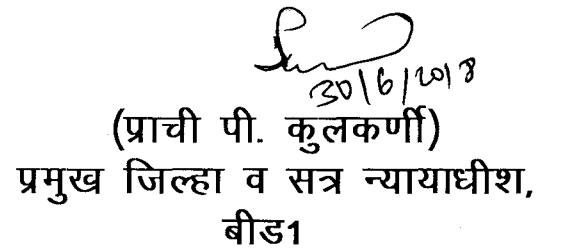 30/6/2018
(प्राची पी. कुलकर्णी)
प्रमुख जिल्हा व सत्र न्यायाधीश,
बीड1